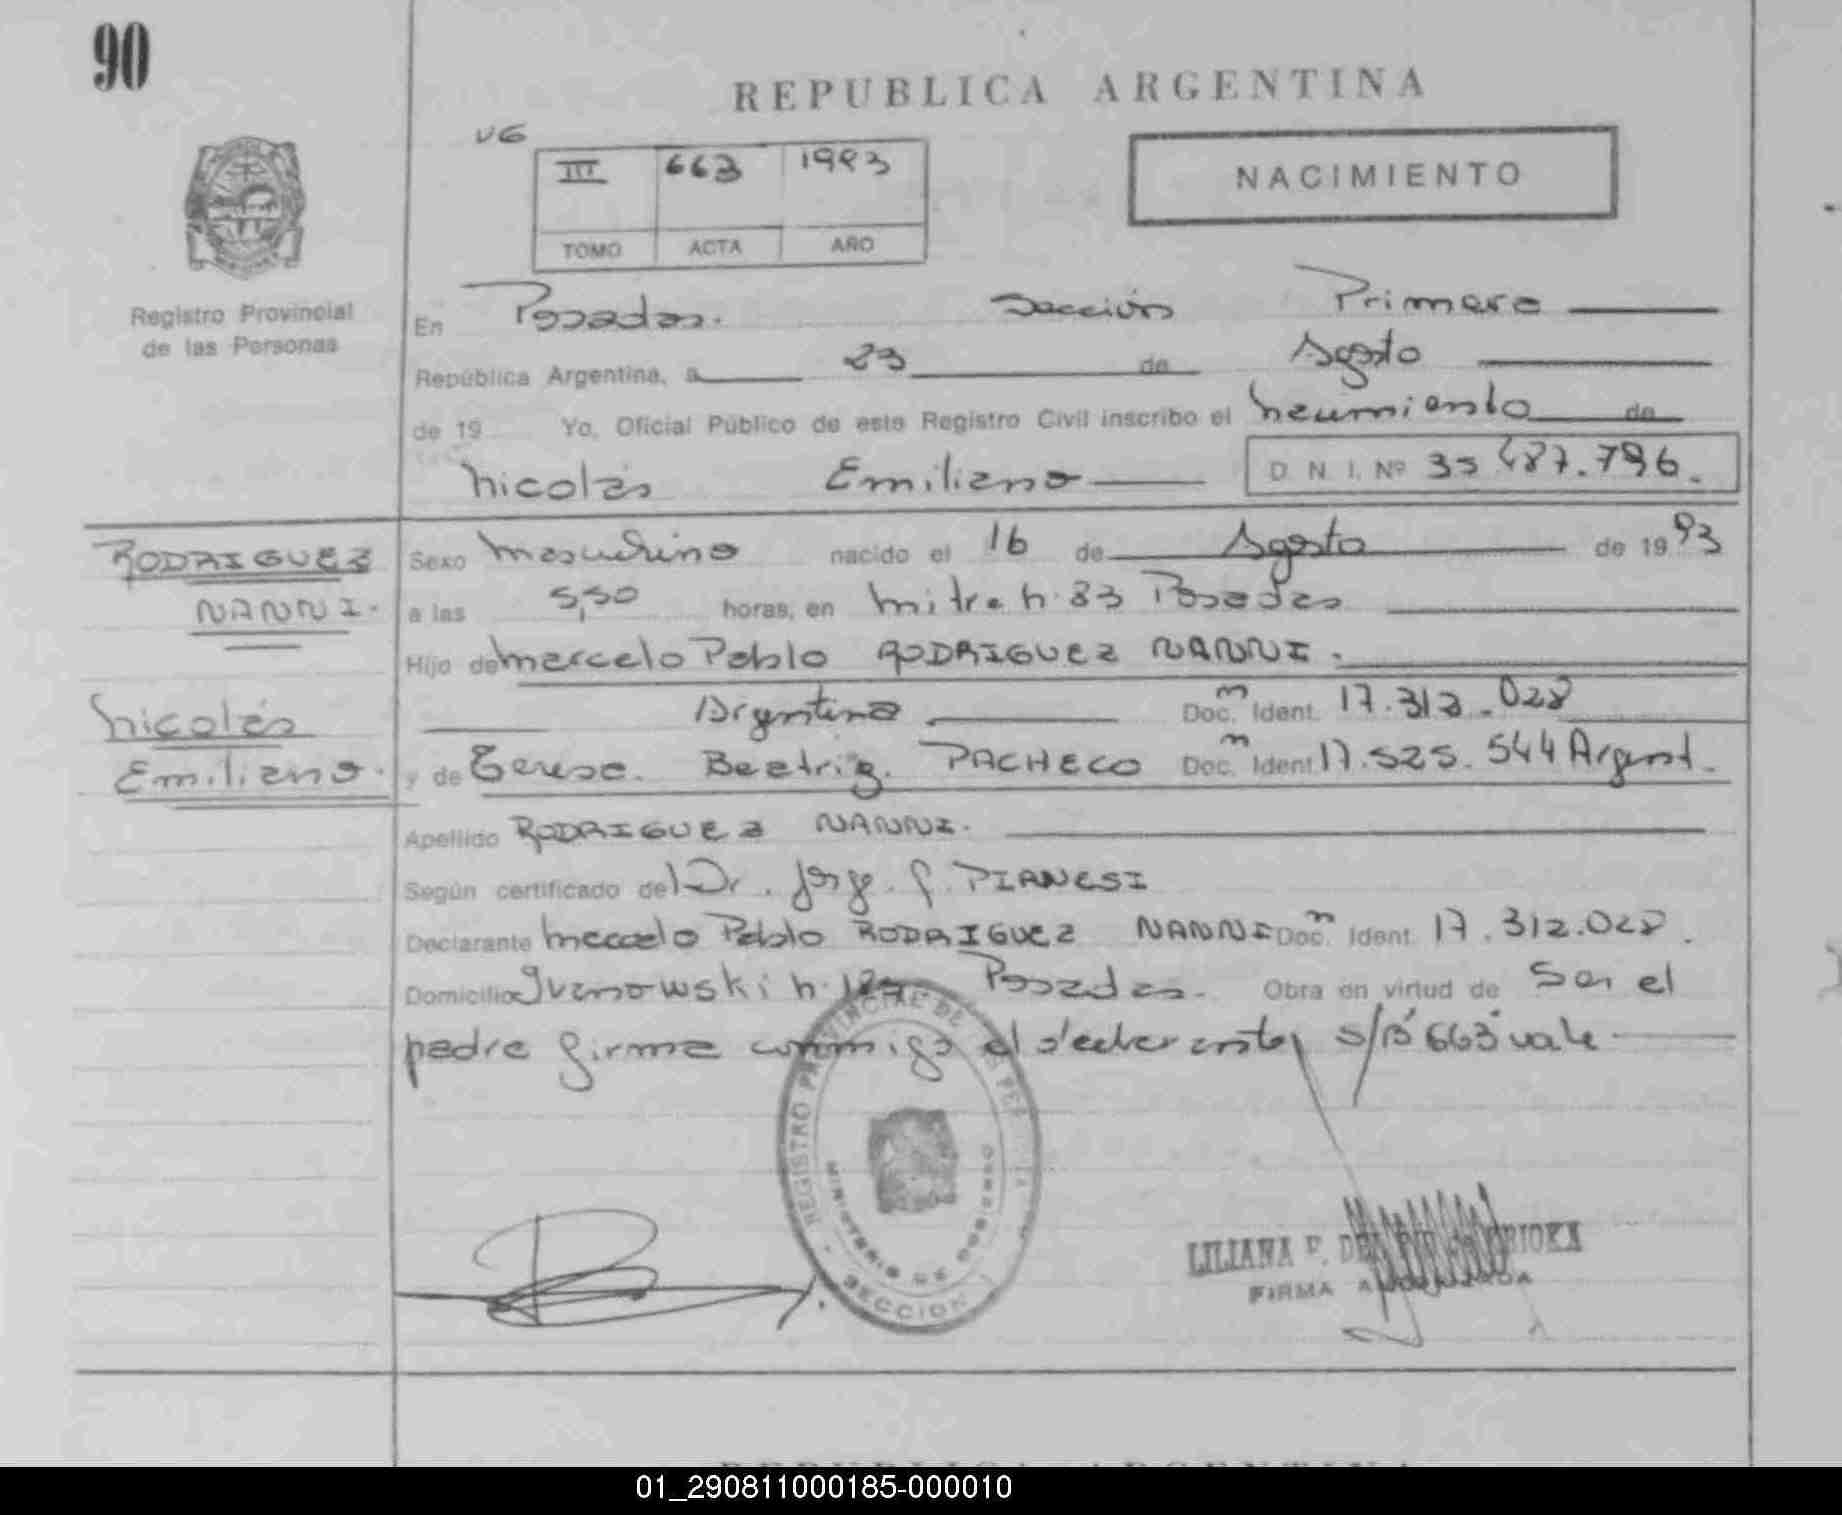 90
REPUBLICA ARGENTINA
VG
III 663 1993
TOMO ACTA AÑO
NACIMIENTO
Registro Provincial
de las Personas
En Posadas. Sección Primera
República Argentina, a 23 de Agosto
de 19 Yo, Oficial Público de este Registro Civil inscribo el nacimiento de
Nicolás Emiliano D. N. I. Nº 35 487.796.
RODRIGUEZ
NANNI.
Nicolás
Emiliano.
Sexo Masculino nacido el 16 de Agosto de 1993
a las 5,50 horas, en Mitre n. 83 Posadas
Hijo de Marcelo Pablo RODRIGUEZ NANNI.
Argentina Doc. Ident. 17.312.028
y de Teresa. Beatriz. PACHECO Doc. Ident. 17.525.544 Argent.
Apellido RODRIGUEZ NANNI.
Según certificado del Dr. Jorge. PIANESI
Declarante Marcelo Pablo RODRIGUEZ NANNI Doc. Ident. 17.312.028.
Domicilio Ivanowski n. Posadas. Obra en virtud de Ser el
padre firma conmigo el declarante, s/r "663" vale
REGISTRO PROVINCIAL DE LAS PER
MINISTERIO DE GOBIERNO
SECCION
LILIANA F.
FIRMA AUTORIZADA
01_290811000185-000010